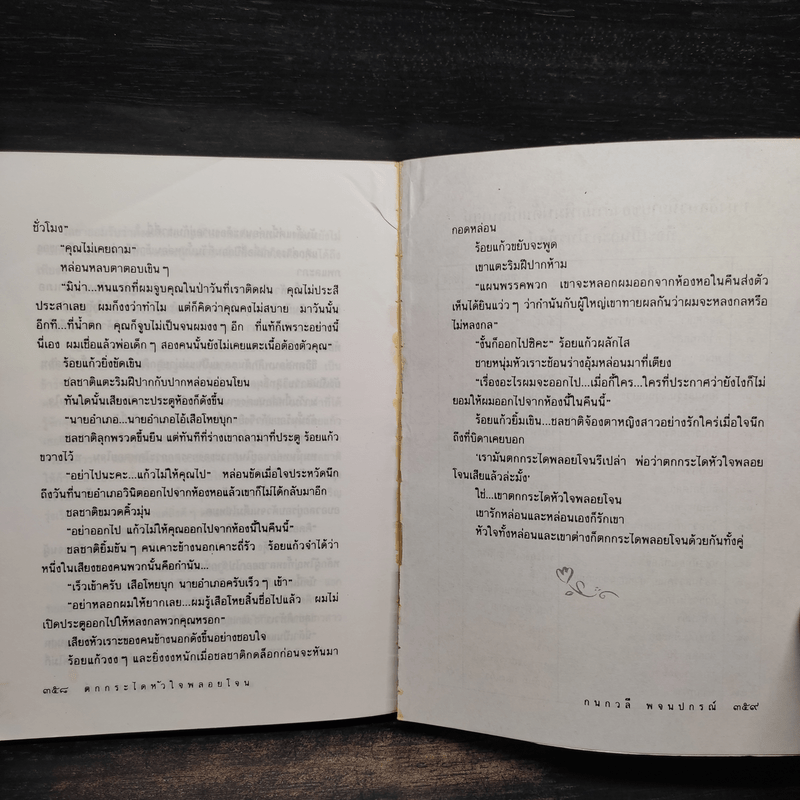 ชั่วโมง”
“คุณไม่เคยถาม”
หล่อนหลบตาตอบเขิน ๆ
“มิน่า...หนแรกที่ผมจูบคุณในป่าวันที่เราติดฝน คุณไม่ประสี
ประสาเลย ผมก็งงว่าทำไม แต่ก็คิดว่าคุณคงไม่สบาย มาวันนั้น
อีกที...ที่น้ำตก คุณก็จูบไม่เป็นจนผมงง ๆ อีก ที่แท้ก็เพราะอย่างนี้
นี่เอง ผมเชื่อแล้วพ่อเด็ก ๆ สองคนนั้นยังไม่เคยแตะเนื้อต้องตัวคุณ”
ร้อยแก้วยิ่งขัดเขิน
ชลชาติแตะริมฝีปากกับปากหล่อนอ่อนโยน
ทันใดนั้นเสียงเคาะประตูห้องก็ดังขึ้น
“นายอำเภอ...นายอำเภอไอ้เสือโหยบุก”
ชลชาติลุกพรวดขึ้นยืน แต่ทันทีที่ร่างเขาถลามาที่ประตู ร้อยแก้ว
ขวางไว้
“อย่าไปนะคะ...แก้วไม่ให้คุณไป” หล่อนขัดเมื่อใจประหวัดนึก
ถึงวันที่นายอำเภอวินิตออกไปจากห้องหอแล้วเขาก็ไม่ได้กลับมาอีก
ชลชาติขมวดคิ้วมุ่น
“อย่าออกไป แก้วไม่ให้คุณออกไปจากห้องนี้ในคืนนี้”
ชลชาติยิ้มขัน ๆ คนเคาะข้างนอกเคาะถี่รัว ร้อยแก้วจำได้ว่า
หนึ่งในเสียงของคนพวกนั้นคือกำนัน...
“เร็วเข้าครับ เสือโหยบุก นายอำเภอครับเร็ว ๆ เข้า”
“อย่าหลอกผมให้ยากเลย...ผมรู้เสือโหยสิ้นชื่อไปแล้ว ผมไม่
เปิดประตูออกไปให้หลงกลพวกคุณหรอก”
เสียงหัวเราะของคนข้างนอกดังขึ้นอย่างชอบใจ
ร้อยแก้วงง ๆ และยิ่งงงหนักเมื่อชลชาติกดล็อกก่อนจะหันมา
๓๕๘ ตกกระไดหัวใจพลอยโจน
กอดหล่อน
ร้อยแก้วขยับจะพูด
เขาแตะริมฝีปากห้าม
“แผนพรรคพวก เขาจะหลอกผมออกจากห้องหอในคืนส่งตัว
เห็นได้ยินแว่ว ๆ ว่ากำนันกับผู้ใหญ่เขาทายผลกันว่าผมจะหลงกลหรือ
ไม่หลงกล”
“งั้นก็ออกไปซิคะ” ร้อยแก้วผลักไส
ชายหนุ่มหัวเราะช้อนร่างอุ้มหล่อนมาที่เตียง
“เรื่องอะไรผมจะออกไป...เมื่อกี้ใคร...ใครที่ประกาศว่ายังไงก็ไม่
ยอมให้ผมออกไปจากห้องนี้ในคืนนี้”
ร้อยแก้วยิ้มเขิน...ชลชาติจ้องตาหญิงสาวอย่างรักใคร่เมื่อใจนึก
ถึงที่บิดาเคยบอก
‘เรามันตกกระไดพลอยโจนรึเปล่า พ่อว่าตกกระไดหัวใจพลอย
โจนเสียแล้วล่ะมั้ง’
ใช่...เขาตกกระไดหัวใจพลอยโจน
เขารักหล่อนและหล่อนเองก็รักเขา
หัวใจทั้งหล่อนและเขาต่างก็ตกกระไดพลอยโจนด้วยกันทั้งคู่
กนกวลี พจนปกรณ์ ๓๕๙